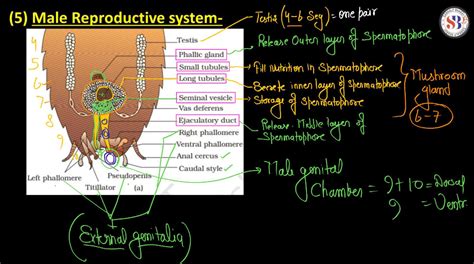 (5) Male Reproductive system-
Testis (4-6 Seg) = one pair
Release Outer layer of Spermatophore
Fill nutrition in Spermatophore
Secrete inner layer of Spermatophore
Storage of Spermatophore
Mushroom
gland
6-7
Release Middle layer of
Spermatophore
Male genital
Chamber = 9+10 = Dorsal
9 = Ventr
4
5
6
7
8
9
Testis
Phallic gland
Small tubules
Long tubules
Seminal vesicle
Vas deferens
Ejaculatory duct
Right phallomere
Ventral phallomere
Anal cercus
Caudal style
Left phallomere
Pseudopenis
Titillator
(a)
(External genitalia)
SB